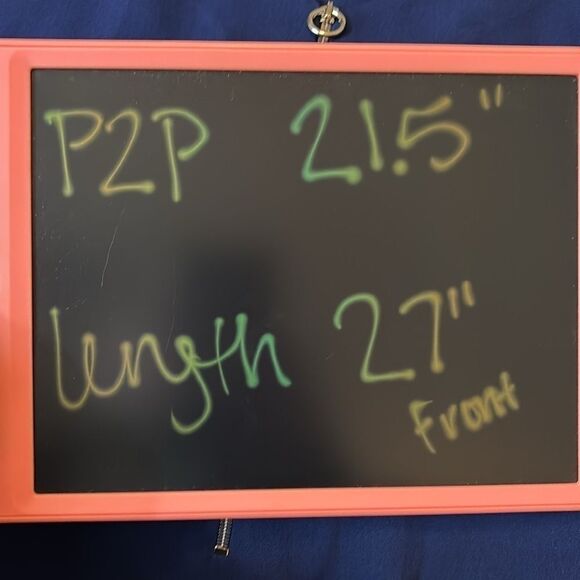 P2P 21.5"
length 27"
Front